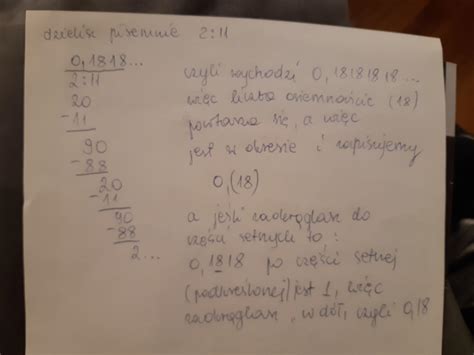 dzielisz pisemnie 2:11
0,1818...
2:11
20
-11
90
-88
20
-11
90
-88
2...
czyli wychodzi 0,18181818...
więc liczba osiemnaście (18)
powtarza się, a więc
jest w okresie i zapisujemy
0,(18)
a jeśli zaokrąglasz do
części setnych to:
0,1818 po części setnej
(podkreślonej) jest 1, więc
zaokrąglasz w dół, czyli 0,18